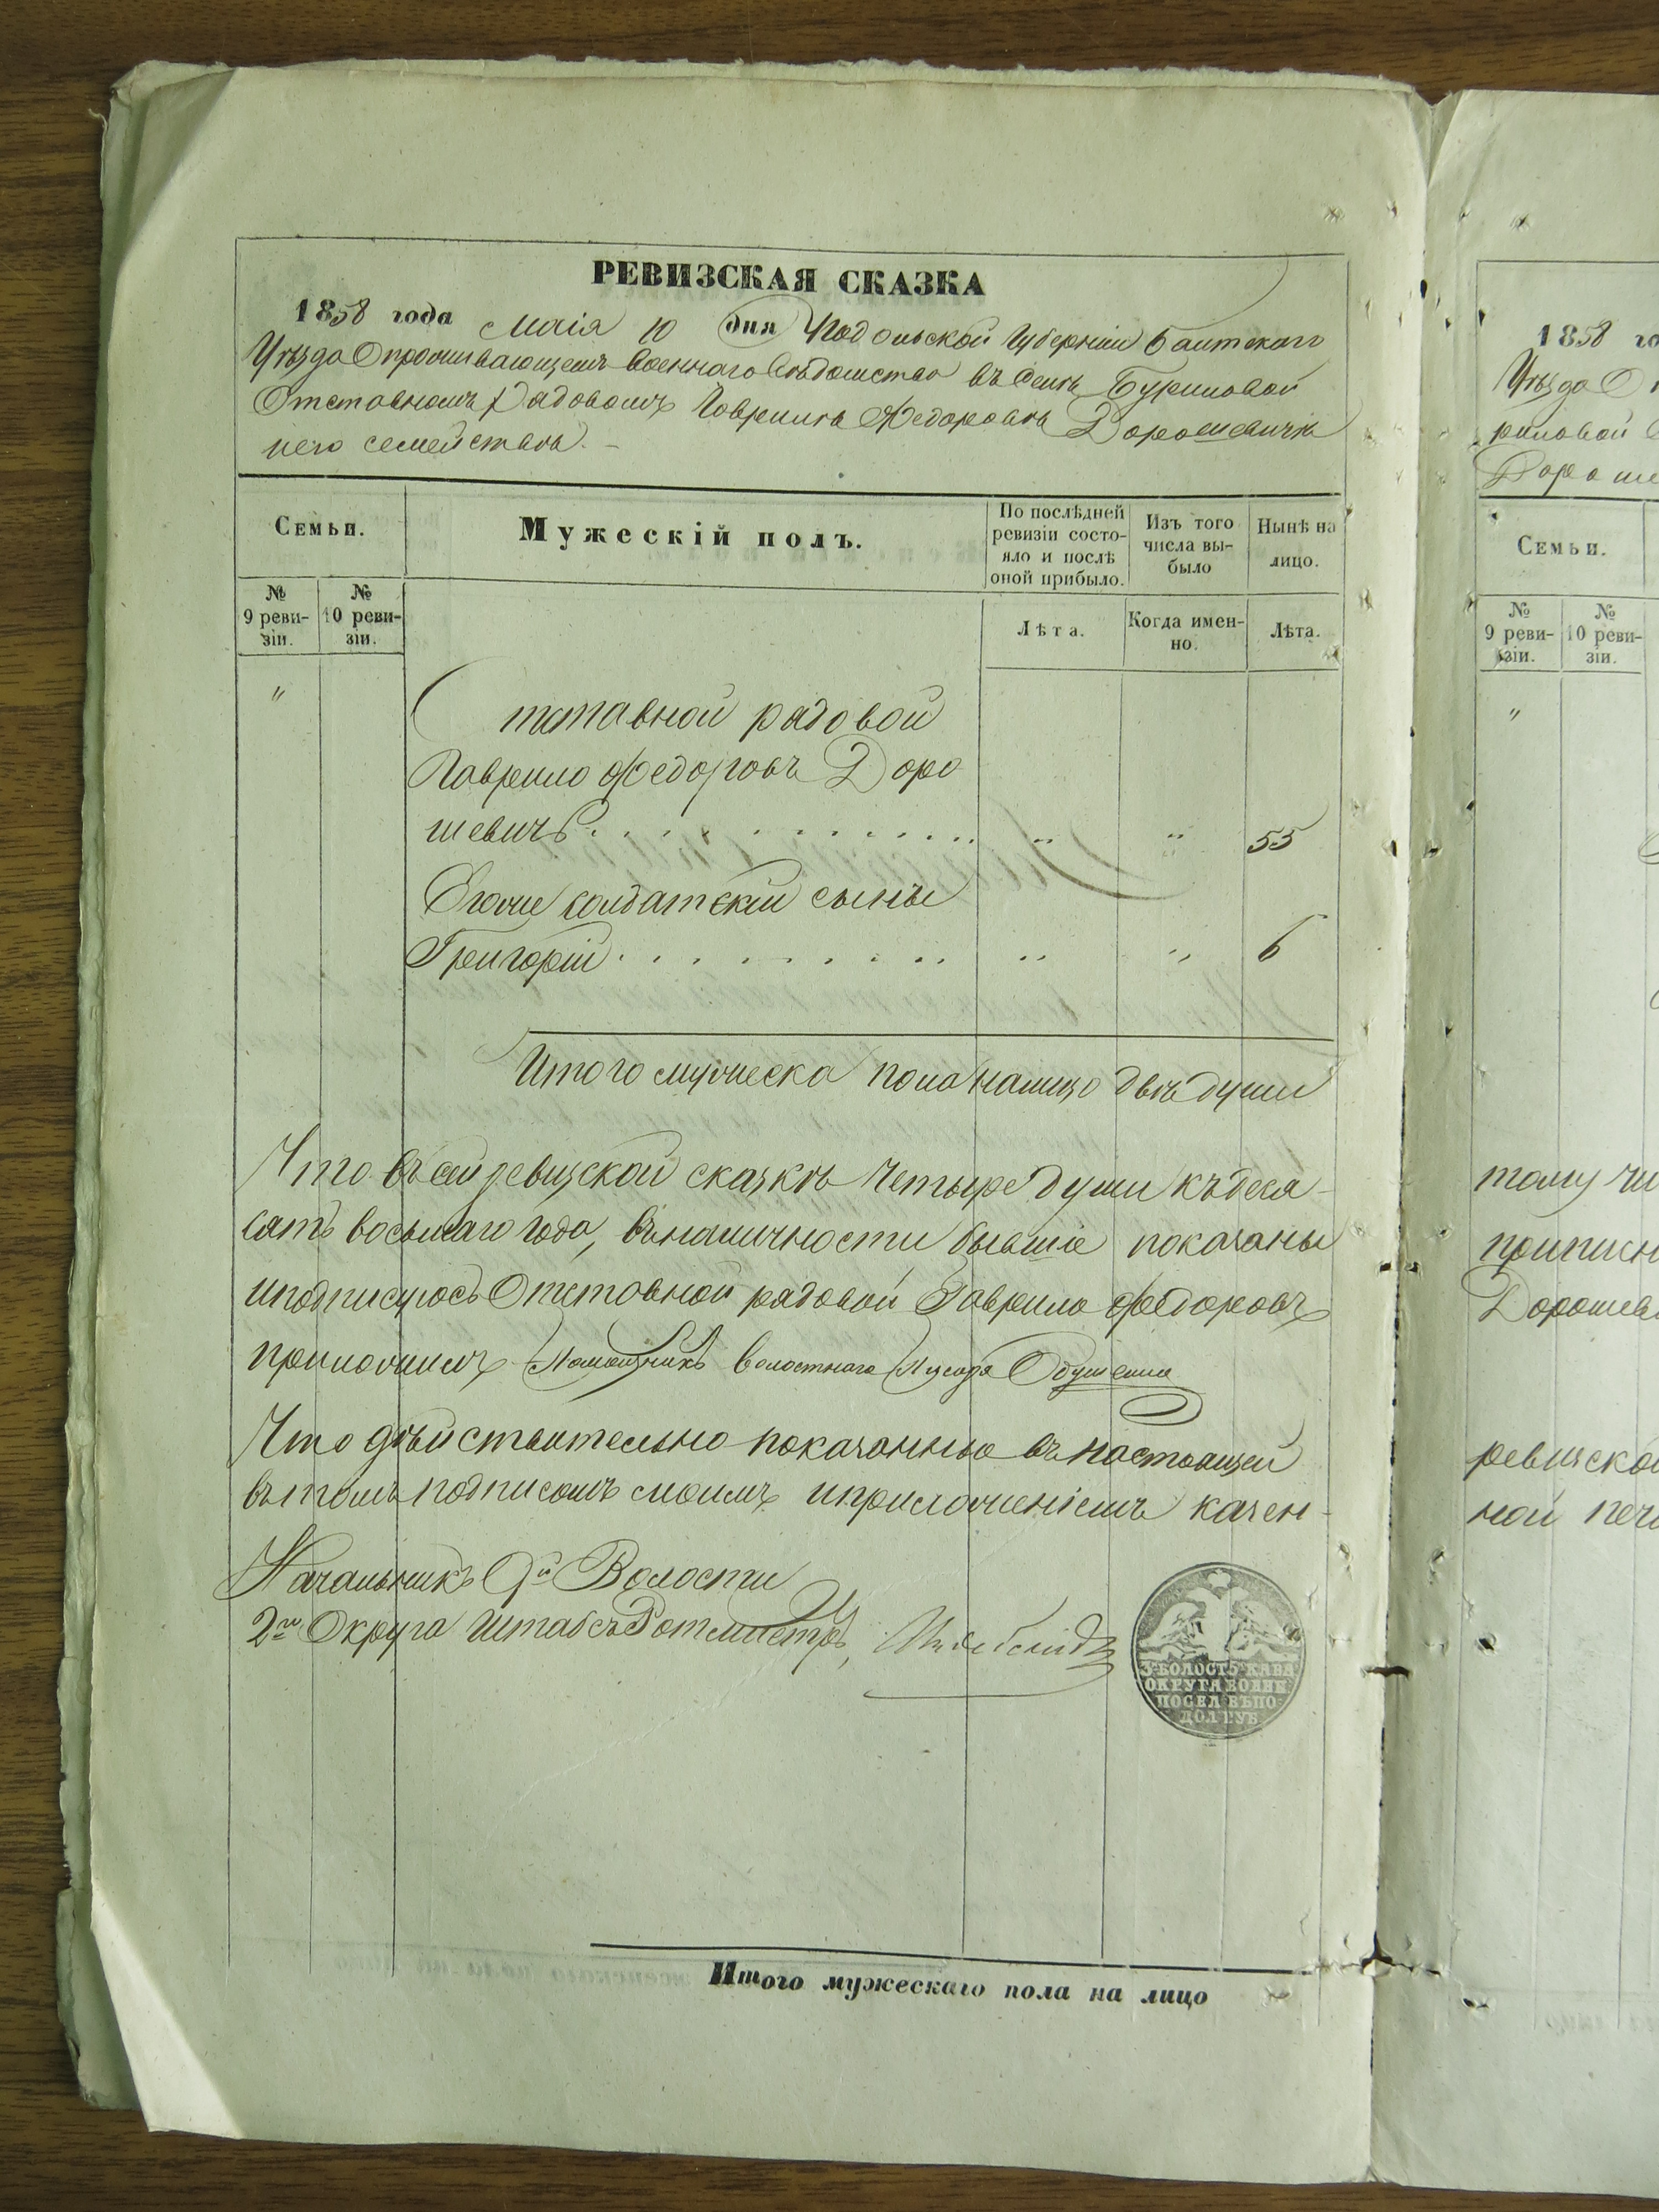 РЕВИЗСКАЯ СКАЗКА
1858 года Маія 10 дня Подольской Губерніи Балтского
Уѣзда О проживающемъ Военнаго Вѣдомства въ Селѣ Буриловой
Отставномъ Рядовомъ Гаврилѣ Федоровѣ Дорошевичѣ
и его семействѣ. –
Семьи.
Мужескій полъ.
По послѣдней
ревизіи состо-
яло и послѣ
оной прибыло.
Изъ того
числа вы-
было
Нынѣ на
лицо.
№
9 реви-
зіи.
№
10 реви-
зіи.
Лѣта.
Когда имен-
но.
Лѣта.
" Отставной рядовой
Гаврило Федоровъ Доро
шевичъ . . . . . . . . . . . . " " 55
Егоже солдатскіи сыны
Григорій . . . . . . . . . " " 6
Итого мужеска пола налицо двѣ души
Что въ сей ревизской сказкѣ четыре души къ деся-
сятъ восьмаго года, въ наличности бывшіе показаны
и подписуюсь Отставной рядовой Гаврило Федоровъ
приложилъ Помощникъ Волостнаго Писаря
Что дѣйствительно показанные въ настоящей
въ томъ подписомъ моимъ и приложеніемъ казен-
Начальникъ Волости
2го Округа Штабсъ Ротмистръ,
3 ВОЛОСТ 5 КАВА
ОКРУГА ВОЕНН
ПОСЕЛ ВЪ ПО
ДОЛ ГУБ
Итого мужескаго пола на лицо
1858 го
Уѣзда О
риловой
Дороше
Семьи.
№
9 реви-
зіи.
№
10 реви-
зіи.
"
тому чи
приписн
Дорошев
ревизско
ной печ